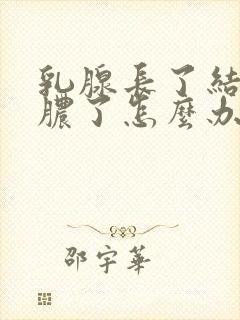 乳腺長了結
膿了怎麼办
邵宇華